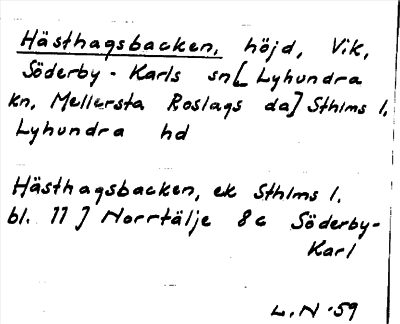 Hästhagsbacken, höjd, Vik,
Söderby-Karls sn[Lyhundra
kn, Mellersta Roslags da] Sthlms l,
Lyhundra hd
Hästhagsbacken, ek Sthlms l.
bl. 11] Norrtälje 8c Söderby-
Karl
L.N-59